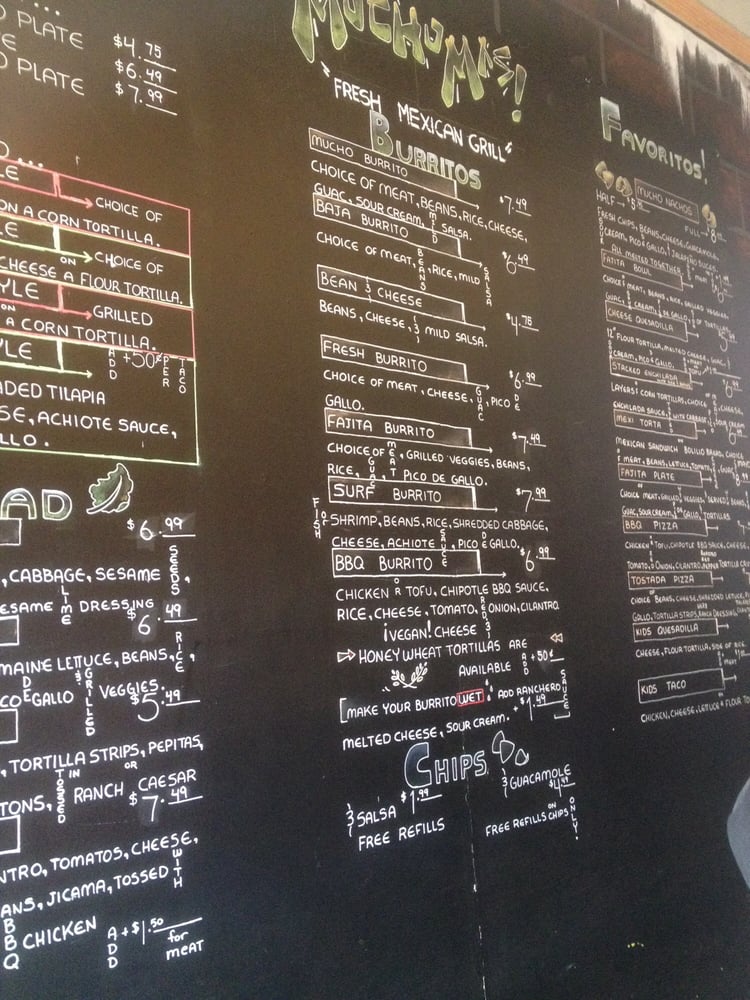 PLATE $4.75
$6.49
PLATE $7.99
CHOICE OF
ON A CORN TORTILLA.
ON CHOICE OF
CHEESE A FLOUR TORTILLA.
YLE
ON GRILLED
A CORN TORTILLA.
YLE ADD +50¢ PER TACO
TILAPIA
SE, ACHIOTE SAUCE,
AD
$6.99
, CABBAGE, SESAME SEEDS,
LIME DRESSING
$6.49
LETTUCE, BEANS, RICE,
DE GALLO, GRILLED VEGGIES.
$5.49
, TORTILLA STRIPS, PEPITAS,
TOSSED IN RANCH OR CAESAR
$7.49
TOMATOS, CHEESE,
JICAMA, TOSSED WITH
BBQ CHICKEN ADD +$1.50 for meat
MUCHO MAS!
"FRESH MEXICAN GRILL"
BURRITOS
MUCHO BURRITO
CHOICE OF MEAT, BEANS, RICE, CHEESE, $7.49
GUAC, SOUR CREAM, MILD SALSA.
BAJA BURRITO $6.49
CHOICE OF MEAT, BEANS, RICE, MILD SALSA
BEAN & CHEESE $4.75
BEANS, CHEESE, & MILD SALSA.
FRESH BURRITO $6.99
CHOICE OF MEAT, CHEESE, GUAC, PICO DE
GALLO.
FAJITA BURRITO $7.49
CHOICE OF MEAT, GRILLED VEGGIES, BEANS,
RICE, GUAC, PICO DE GALLO.
SURF BURRITO $7.99
FISH OR SHRIMP, BEANS, RICE, SHREDDED CABBAGE,
CHEESE, ACHIOTE SAUCE, PICO DE GALLO.
BBQ BURRITO $6.99
CHICKEN OR TOFU, CHIPOTLE BBQ SAUCE,
RICE, CHEESE, TOMATO, RED ONION, CILANTRO.
¡VEGAN! CHEESE &
HONEY WHEAT TORTILLAS ARE
AVAILABLE ADD +50¢
MAKE YOUR BURRITO WET: ADD RANCHERO SAUCE
MELTED CHEESE, SOUR CREAM. +$1.49
CHIPS
& SALSA $1.99
FREE REFILLS
& GUACAMOLE
FREE REFILLS ON CHIPS ONLY!
FAVORITOS!
MUCHO NACHOS
HALF FULL
FRESH CHIPS, BEANS, CHEESE, GUACAMOLE,
CREAM, PICO GALLO, JALAPEÑO SLICES,
ALL MELTED TOGETHER.
FAJITA BOWL
MEAT, BEANS, RICE, GRILLED VEGGIES,
CHEESE QUESADILLA
12" FLOUR TORTILLA, MELTED CHEESE,
CREAM, PICO GALLO.
STACKED ENCHILADA
LAYERS CORN TORTILLAS, CHOICE
ENCHILADA SAUCE,
MEXI TORTA
MEXICAN SANDWICH BOLILLO BREAD, CHOICE
MEAT, BEANS, LETTUCE, TOMATO,
FAJITA PLATE
CHOICE MEAT, GRILLED VEGGIES, SERVED
GUAC, SOUR CREAM, GALLO, TORTILLAS
BBQ PIZZA
CHICKEN TOFU, CHIPOTLE BBQ SAUCE, CHEESE,
TOMATO, ONION, CILANTRO, TORTILLA
TOSTADA PIZZA
CHOICE BEANS, CHEESE, SHREDDED LETTUCE,
GALLO, TORTILLA STRIPS, RANCH DRESSING,
KIDS QUESADILLA
CHEESE, FLOUR TORTILLA, SIDE OF RICE
KIDS TACO
CHICKEN, CHEESE, LETTUCE & FLOUR